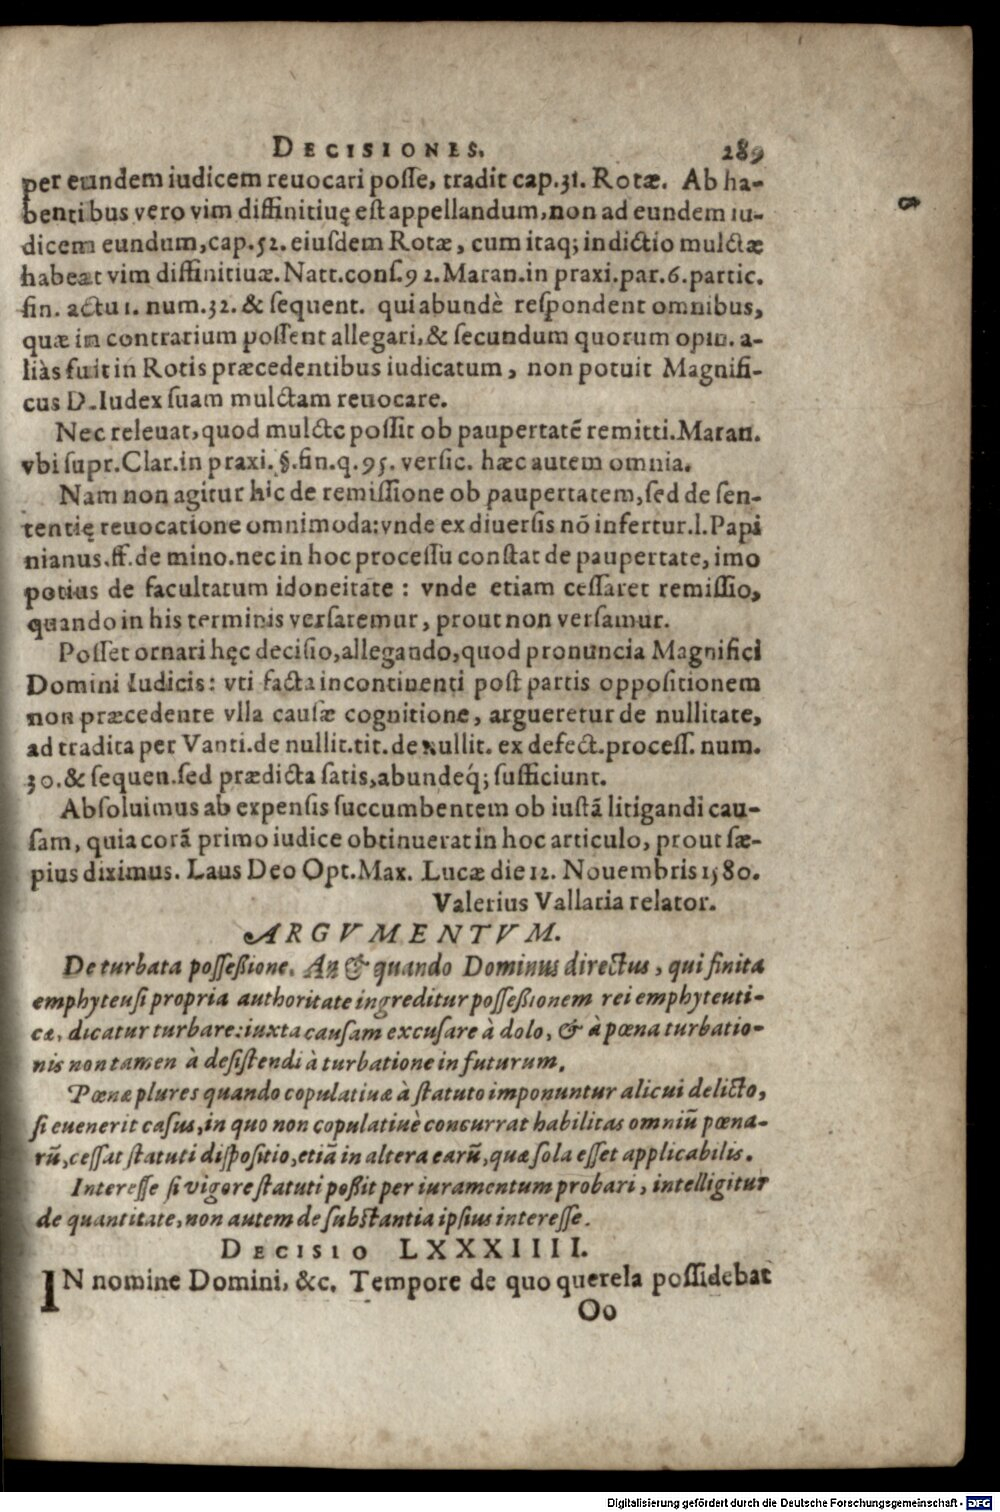 DECISIONES. 289
per eundem iudicem reuocari posse, tradit cap.31. Rotæ. Ab ha-
bentibus vero vim diffinitiuę est appellandum, non ad eundem iu-
dicem eundum, cap.52. eiusdem Rotæ, cum itaq; indictio mulctæ
habeat vim diffinitiuæ. Natt.cons.92. Maran.in praxi.par.6.partic.
fin. actu 1. num.32. & sequent. qui abundè respondent omnibus,
quæ in contrarium possent allegari, & secundum quorum opin. a-
liàs fuit in Rotis præcedentibus iudicatum, non potuit Magnifi-
cus D. Iudex suam mulctam reuocare.
Nec releuat, quod mulcte possit ob paupertatē remitti. Maran.
vbi supr. Clar.in praxi. §.fin.q.95. versic. hæc autem omnia.
Nam non agitur hic de remissione ob paupertatem, sed de sen-
tentię reuocatione omnimoda: vnde ex diuersis nō infertur.l.Papi
nianus.ff.de mino.nec in hoc processu constat de paupertate, imo
potius de facultatum idoneitate : vnde etiam cessaret remissio,
quando in his terminis versaremur, prout non versamur.
Posset ornari hęc decisio, allegando, quod pronuncia Magnifici
Domini Iudicis: vti facta incontinenti post partis oppositionem
non præcedente vlla causæ cognitione, argueretur de nullitate,
ad tradita per Vanti.de nullit.tit.de nullit. ex defect.process. num.
30.& sequen.sed prædicta satis, abundeq́; sufficiunt.
Absoluimus ab expensis succumbentem ob iustā litigandi cau-
sam, quia corā primo iudice obtinuerat in hoc articulo, prout sæ-
pius diximus. Laus Deo Opt. Max. Lucæ die 12. Nouembris 1580.
Valerius Vallaria relator.
ARGVMENTVM.
De turbata possessione. An & quando Dominus directus, qui finita
emphyteusi propria authoritate ingreditur possessionem rei emphyteuti-
cæ, dicatur turbare: iuxta causam excusare à dolo, & à pœna turbatio-
nis non tamen à desistendi à turbatione in futurum.
Pœnæ plures quando copulatiuæ à statuto imponuntur alicui delicto,
si euenerit casus, in quo non copulatiuè concurrat habilitas omniū pœna-
rū, cessat statuti dispositio, etiā in altera earū, quæ sola esset applicabilis.
Interesse si vigore statuti possit per iuramentum probari, intelligitur
de quantitate, non autem de substantia ipsius interesse.
DECISIO LXXXIIII.
IN nomine Domini, &c. Tempore de quo querela possidebat
Oo
Digitalisierung gefördert durch die Deutsche Forschungsgemeinschaft - DFG